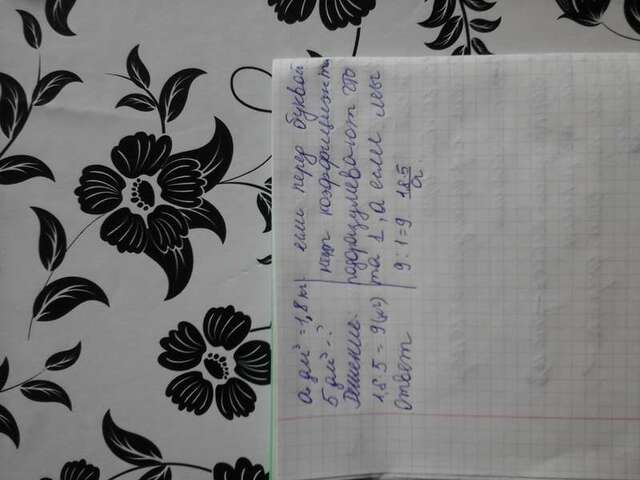 а дм³ = 1,8 кг
5 дм³ - ?
Решение.
1,8·5 = 9(кг)
ответ
если перед буквой
нет коэффициэнта
подразумевают что
та 1, а если мы
9:1=9 1,8·5/а